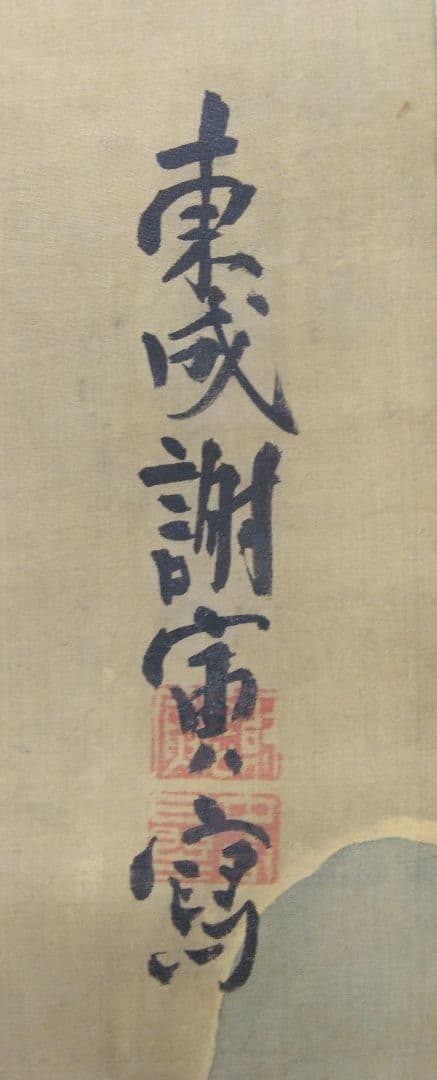 東成謝寅寫